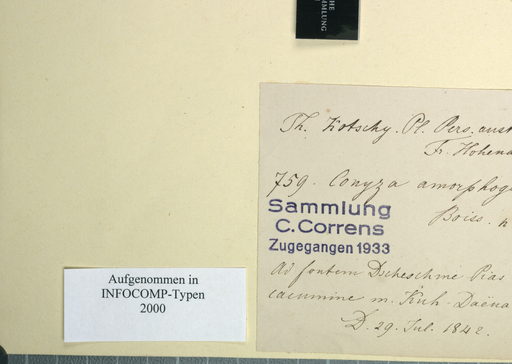 HE
MMLUNG
Th. Kotschy. Pl. Pers. aust
Fr. Hohena
759. Conyza amorphog
Boiss.
Sammlung
C. Correns
Zugegangen 1933
Ad fontem Dscheschme Pias
cacumine m. Kuh-Daëna
D. 29. Jul. 1842.
Aufgenommen in
INFOCOMP-Typen
2000